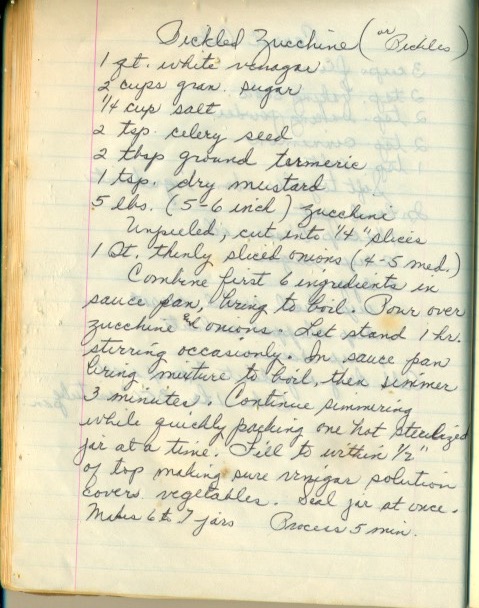 Pickled Zucchine (or Pickles)
1 qt. white venagar
2 cups gran. sugar
1/4 cup salt
2 tsp. celery seed
2 tbsp ground termeric
1 tsp. dry mustard
5 lbs. (5-6 inch) zucchini
Unpeeled, cut into 1/4" slices
1 Qt. thinly sliced onions (4-5 med.)
Combine first 6 ingredients in
sauce pan, bring to boil. Pour over
zucchine & onions. Let stand 1 hr.
stirring occasionly. In sauce pan
bring mixture to boil, then simmer
3 minutes Continue simmering
while quickly packing one hot sterilized
jar at a time. Fill to within 1/2"
of top making sure venigar solution
covers vegetables. Seal jar at once.
Makes 6 to 7 jars Process 5 min.